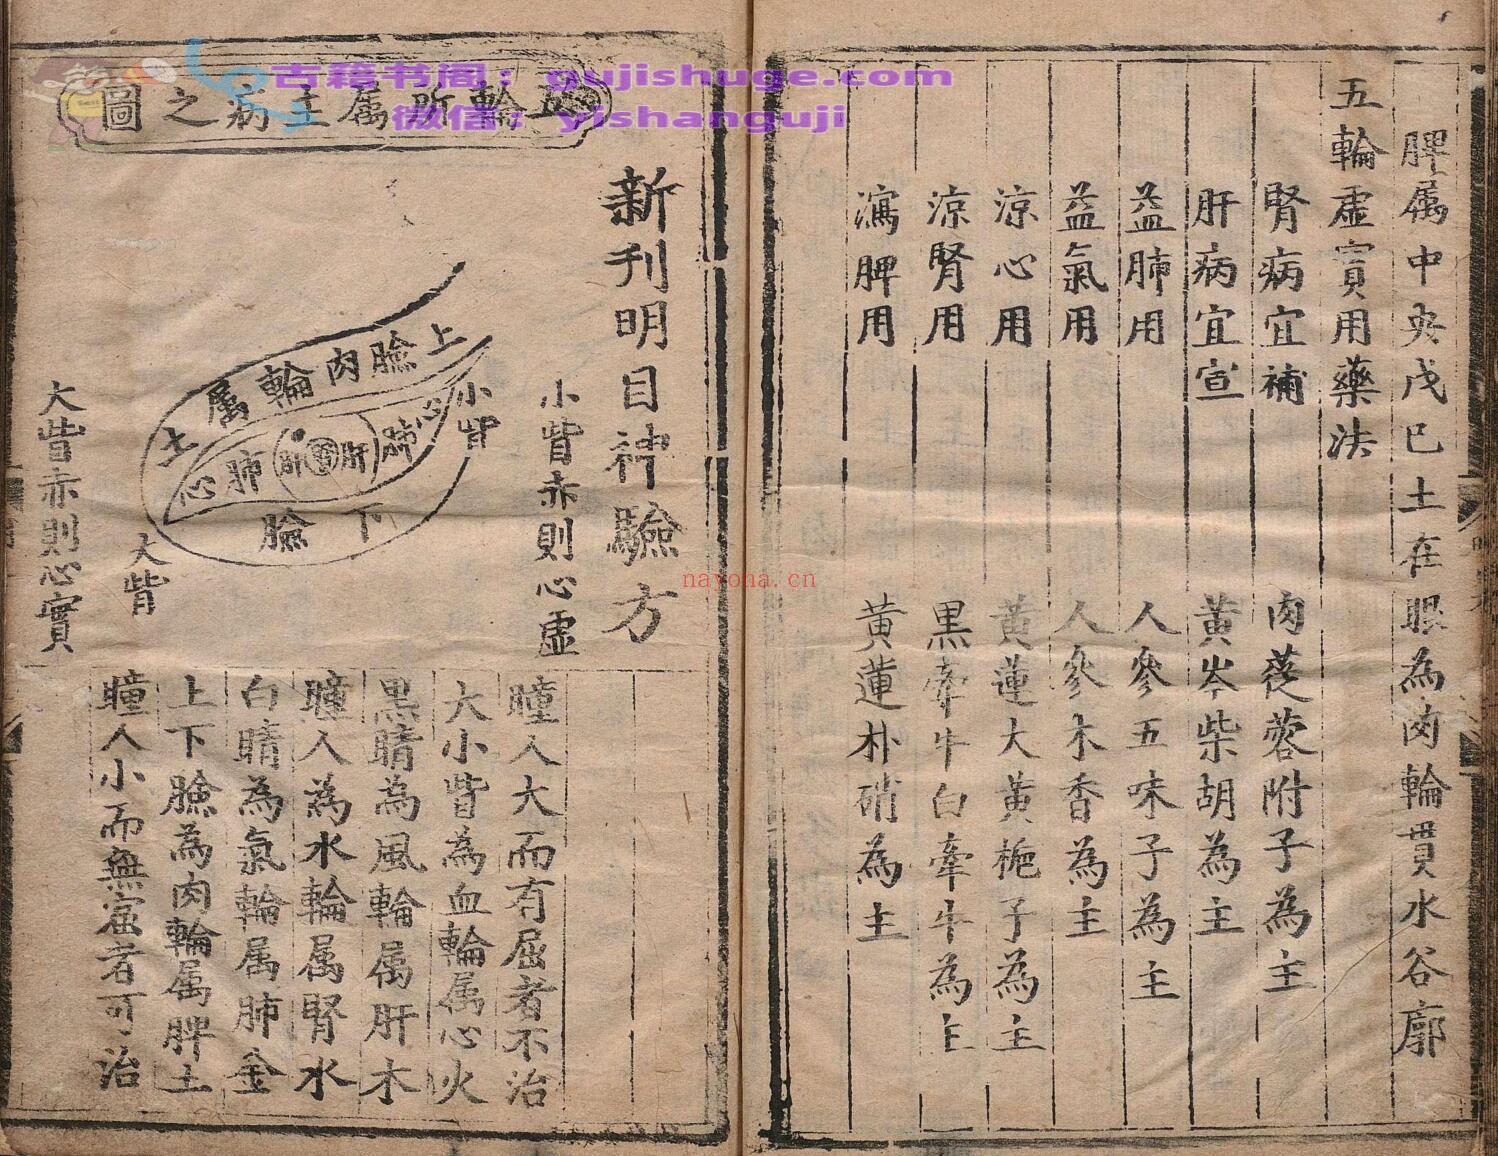 脾属中央戊巳土在眼為肉輪貫水谷廓
五輪虛實用藥法
腎病宜補 肉蓯蓉附子為主
肝病宜宣 黃岑柴胡為主
益肺用 人參五味子為主
益氣用 人參木香為主
涼心用 黃蓮大黃梔子為主
涼腎用 黑牽牛白牽牛為主
瀉脾用 黃蓮朴硝為主
五輪所属主病之圖
新刋明目神驗方
小眥赤則心虛
小眥
上臉肉輪属土
心肺肝腎肝肺心
下臉
大眥
大眥赤則心實
瞳人大而有屈者不治
大小眥為血輪属心火
黑睛為風輪属肝木
瞳人為水輪属腎水
白睛為氣輪属肺金
上下臉為肉輪属脾土
瞳人小而無窟者可治
古籍书阁：gujishuge.com
微信：yishanguji
nayona.cn